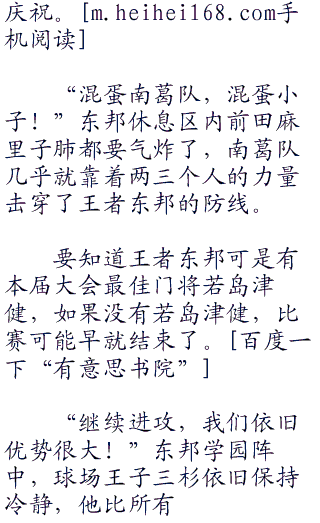 庆祝。[m.heihei168.com手
机阅读]
“混蛋南葛队，混蛋小
子！”东邦休息区内前田麻
里子肺都要气炸了，南葛队
几乎就靠着两三个人的力量
击穿了王者东邦的防线。
要知道王者东邦可是有
本届大会最佳门将若岛津
健，如果没有若岛津健，比
赛可能早就结束了。[百度一
下“有意思书院”]
“继续进攻，我们依旧
优势很大！”东邦学园阵
中，球场王子三杉依旧保持
冷静，他比所有